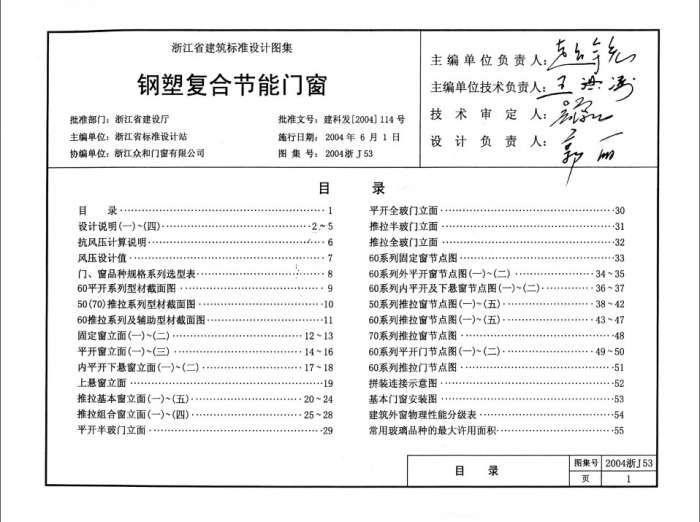 浙江省建筑标准设计图集
钢塑复合节能门窗
批准部门：浙江省建设厅
批准文号：建科发[2004]114号
主编单位：浙江省标准设计站
施行日期：2004年6月1日
协编单位：浙江众和门窗有限公司
图集号：2004浙J53
主编单位负责人：
主编单位技术负责人：
技术审定人：
设计负责人：
目 录
目 录 1
设计说明(一)~(四) 2~5
抗风压计算说明 6
风压设计值 7
门、窗品种规格系列选型表 8
60平开系列型材截面图 9
50(70)推拉系列型材截面图 10
60推拉系列及辅助型材截面图 11
固定窗立面(一)~(二) 12~13
平开窗立面(一)~(三) 14~16
内平开下悬窗立面(一)~(二) 17~18
上悬窗立面 19
推拉基本窗立面(一)~(五) 20~24
推拉组合窗立面(一)~(四) 25~28
平开半玻门立面 29
平开全玻门立面 30
推拉半玻门立面 31
推拉全玻门立面 32
60系列固定窗节点图 33
60系列外平开窗节点图(一)~(二) 34~35
60系列内平开及下悬窗节点图(一)~(二) 36~37
50系列推拉窗节点图(一)~(五) 38~42
60系列推拉窗节点图(一)~(五) 43~47
70系列推拉窗节点图 48
60系列平开门节点图(一)~(二) 49~50
60系列推拉门节点图 51
拼装连接示意图 52
基本门窗安装图 53
建筑外窗物理性能分级表 54
常用玻璃品种的最大许用面积 55
目 录
图集号 2004浙J53
页 1